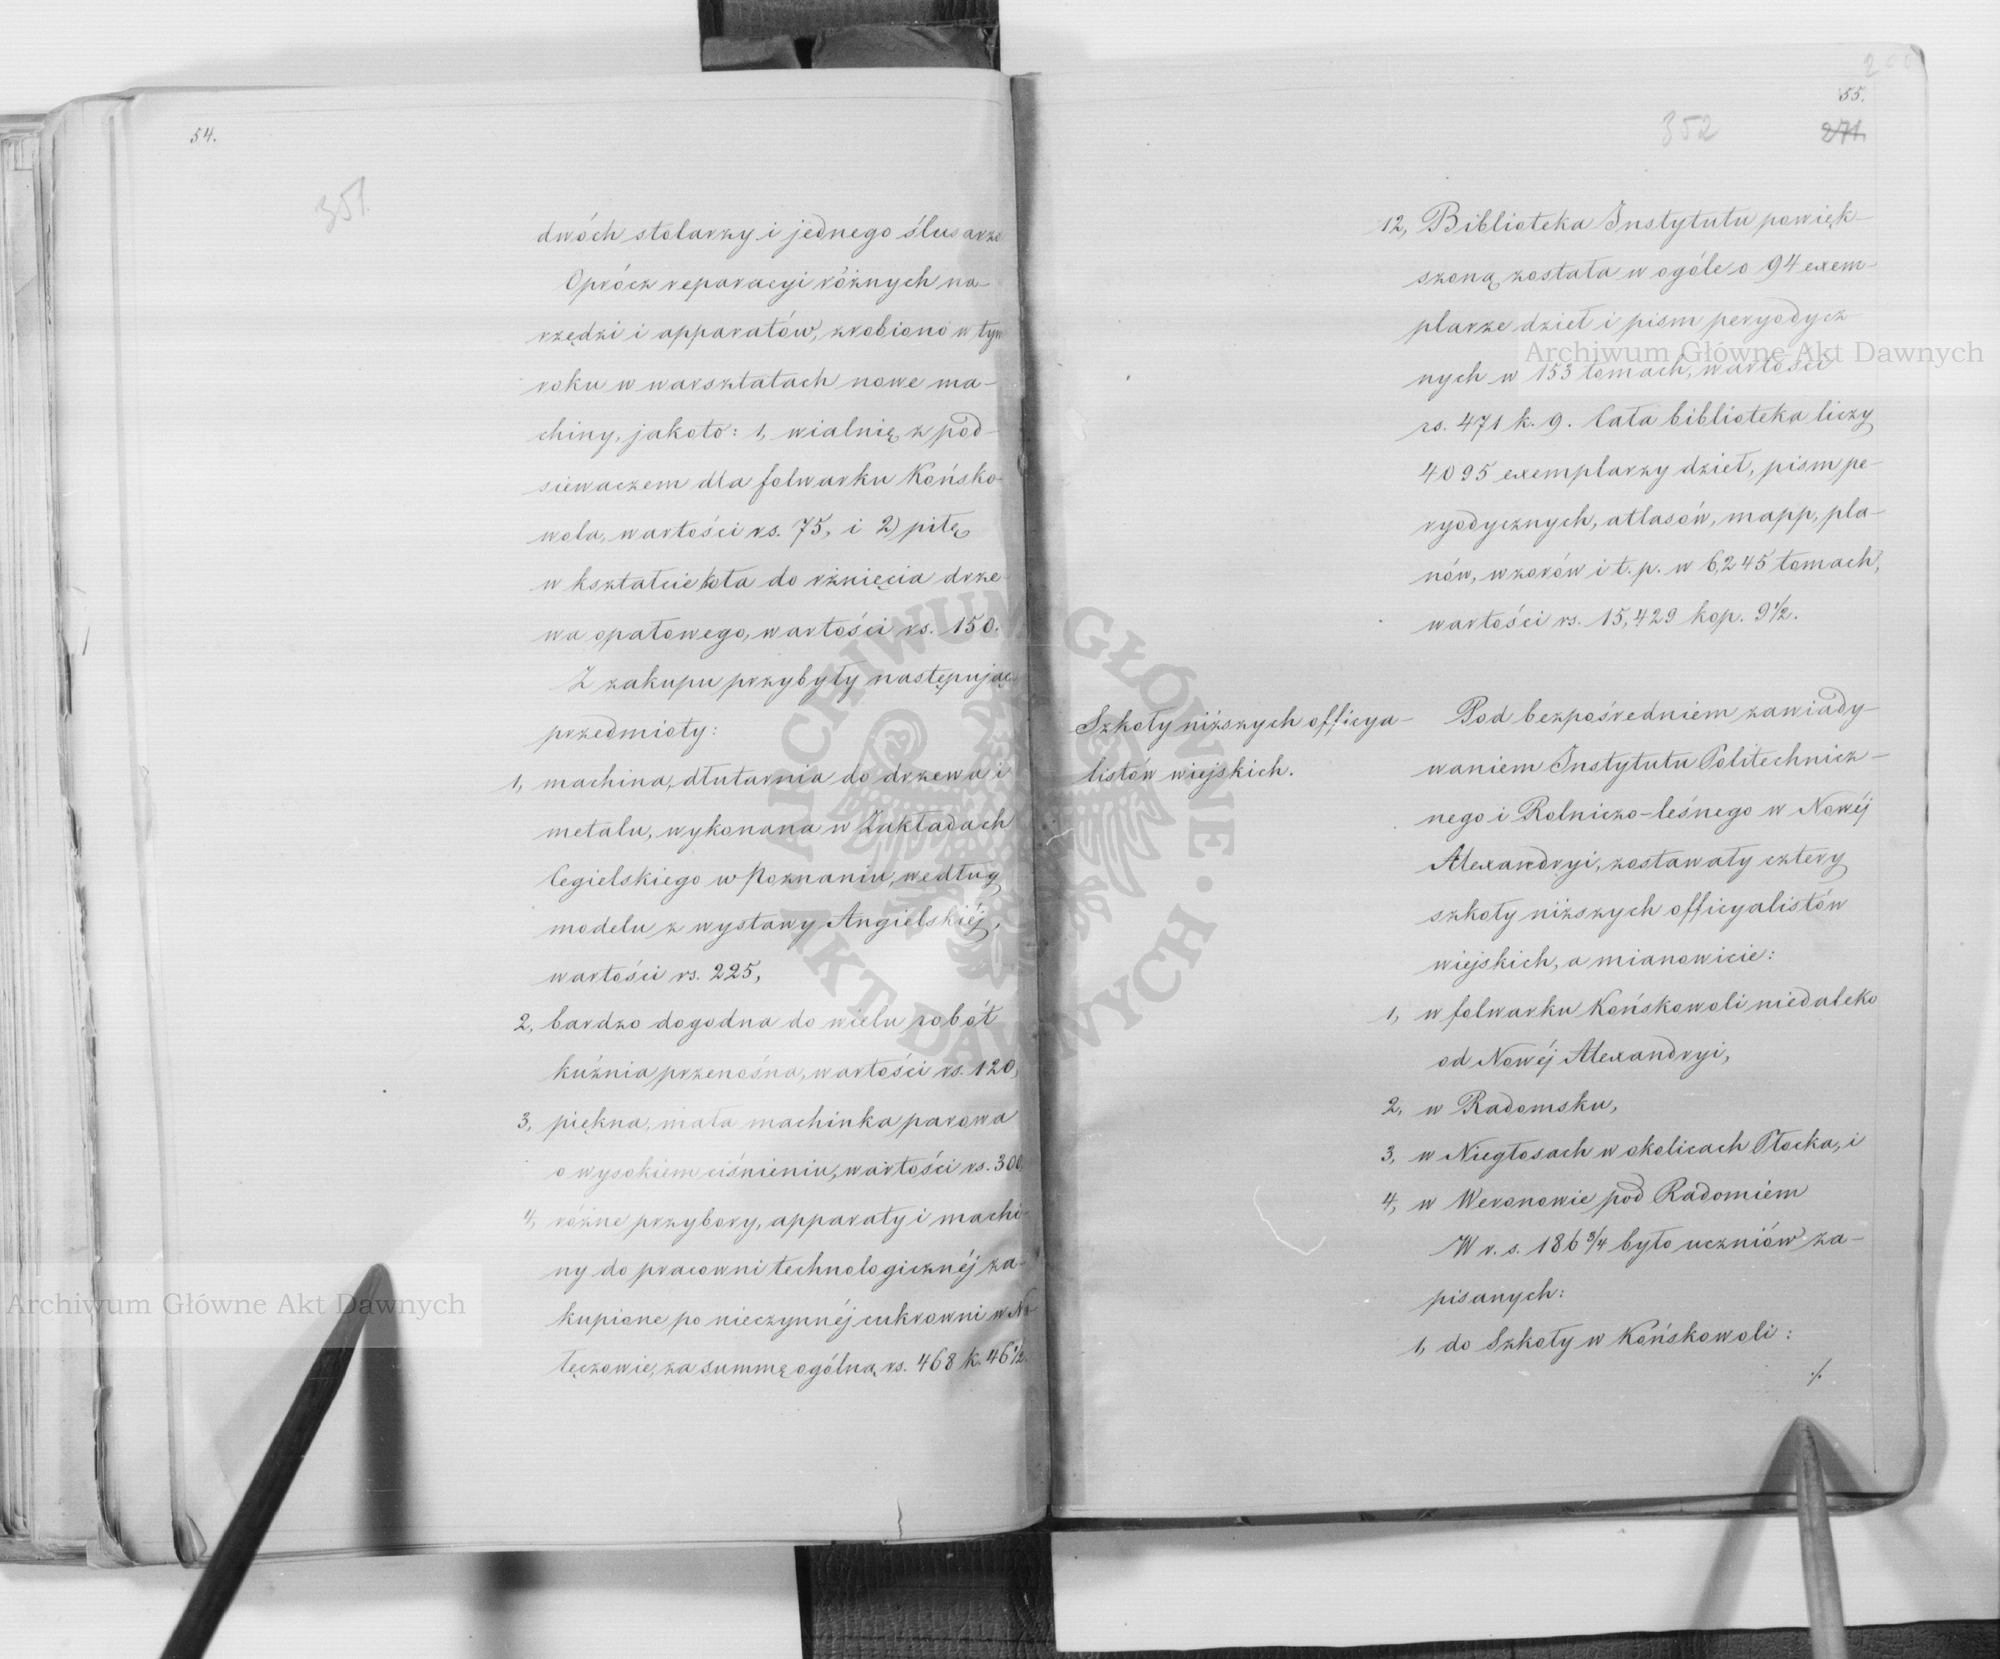 54.
351.
dwóch stolarzy i jednego ślusarza
Oprócz reparacyi różnych na-
rzędzi i apparatów, zrobiono w tym
roku w warsztatach nowe ma-
chiny, jakoto: 1, wialnię z pod-
siewaczem dla folwarku Końsko-
wola, wartości rs. 75, i 2) piłę
w kształcie koła do rżnięcia drze-
wa opałowego, wartości rs. 150.
Z zakupu przybyły następując
przedmioty:
1, machina, dłutarnia do drzewa i
metalu, wykonana w Zakładach
Cegielskiego w Poznaniu, według
modelu z wystawy Angielskiéj,
wartości rs. 225,
2, bardzo dogodna do wielu robót
kuźnia przenośna, wartości rs. 120,
3, piękna, mała machinka parowa
o wysokiem ciśnieniu, wartości rs. 300,
4, różne przybory, apparaty i machi-
ny do pracowni technologicznéj za-
kupione po nieczynnéj cukrowni w Na-
łęczowie, za summę ogólną rs. 468 k. 46½.
55.
352
271.
12, Biblioteka Instytutu powięk-
szoną została w ogóle o 94 exem-
plarze dzieł i pism peryodycz-
nych w 153 tomach, wartości
rs. 471 k. 9. Cała biblioteka liczy
4095 exemplarzy dzieł, pism pe-
ryodycznych, atlasów, mapp, pla-
nów, wzorów i t. p. w 6,245 tomach,
wartości rs. 15,429 kop. 9½.
Szkoły niższych officya-
listów wiejskich.
Pod bezpośredniem zawiady-
waniem Instytutu Politechnicz-
nego i Rolniczo-leśnego w Nowéj
Alexandryi, zostawały cztery
szkoły niższych officyalistów
wiejskich, a mianowicie:
1, w folwarku Końskowoli niedaleko
od Nowéj Alexandryi,
2, w Radomsku,
3, w Niegłosach w okolicach Płocka, i
4, w Weronowie pod Radomiem
W r. s. 186 3/4 było uczniów za-
pisanych:
1, do Szkoły w Końskowoli:
./.
Archiwum Główne Akt Dawnych
Archiwum Główne Akt Dawnych
ARCHIWUM GŁÓWNE • AKT DAWNYCH •